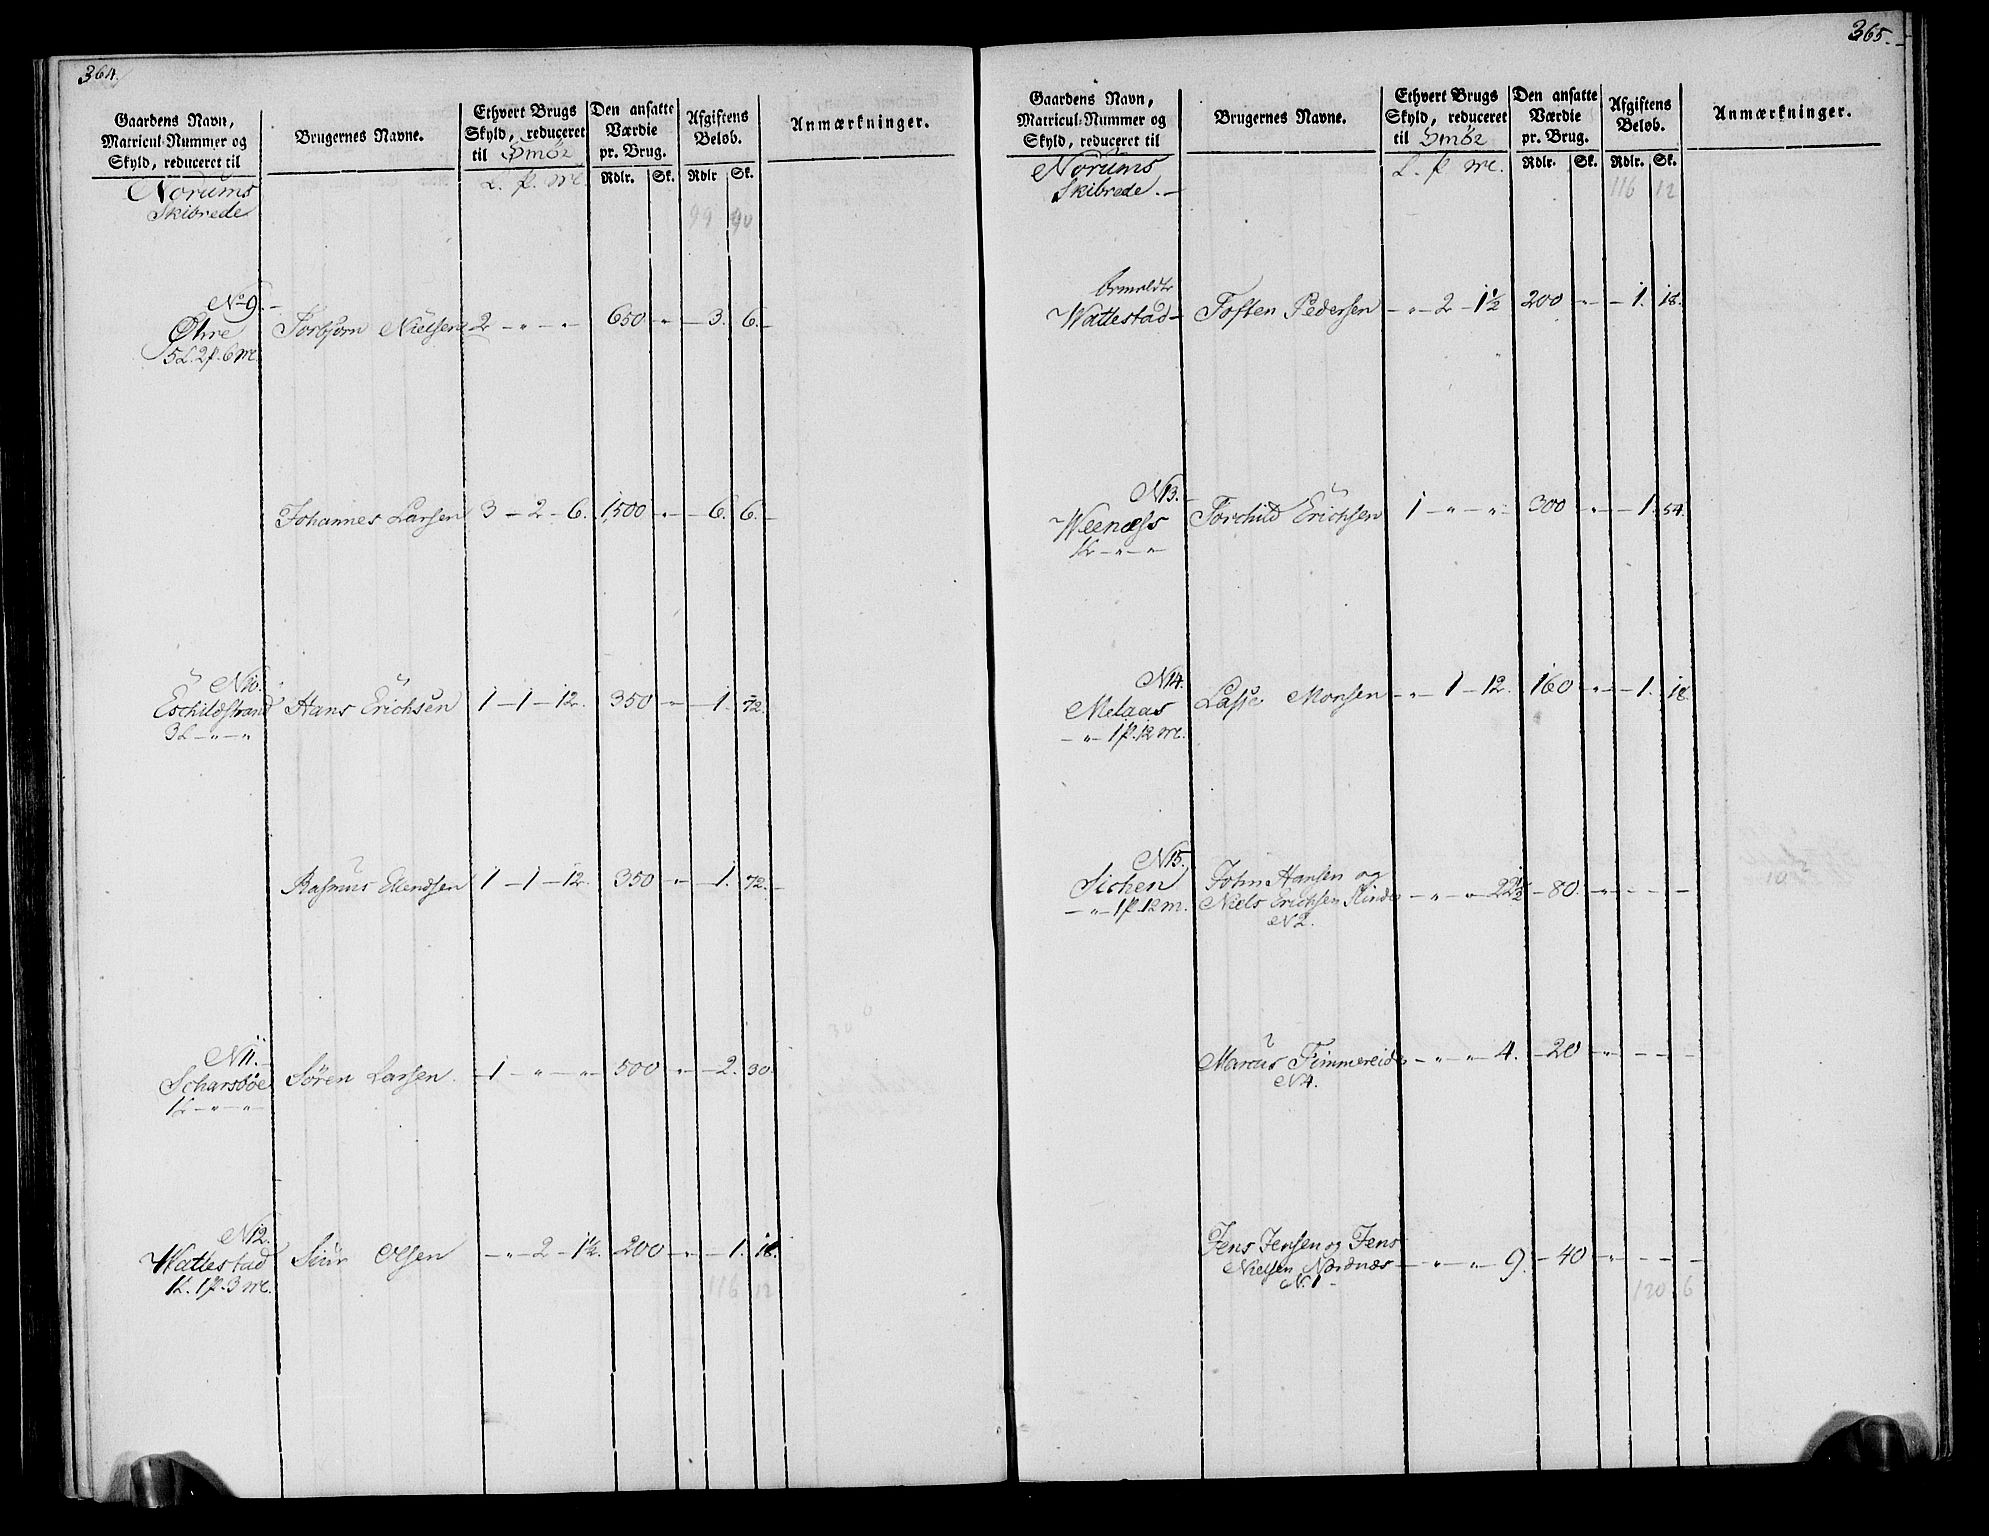 364.
Gaardens Navn,
Matricul-Nummer og
Skyld, reduceret til
Brugernes Navne.
Ethvert Brugs
Skyld, reduceret
til Smör
Den ansatte
Værdie
pr. Brug.
Afgiftens
Beløb.
Anmærkninger.
Norums
Skibrede
L. p. mc.
Rdlr. Sk. Rdlr Sk.
99 90
No 9.
Øhre
5L. 2p. 6 mc.
Torbjörn Nielsen 2 - " - " 650 " - 3. 6.
Johannes Larsen 3 - 2 - 6. 1,500 " - 6. 6.
N 10.
Eschildstrand Hans Erichsen 1 - 1 - 12. 350 " - 1. 72.
3L - " - "
Rasmus Elendsen 1 - 1 - 12. 350 " - 1. 72.
N 11.
Scharsböe Sören Larsen. 1 - " - " 500 " - 2. 30.
1L - " - "
N 12.
Wattestad Siur Olsen - " - 2 - 1½. 200 " - 1. 18.
1L. 1p. 3 mc.
116 12
365.
Gaardens Navn,
Matricul-Nummer og
Skyld, reduceret til
Brugernes Navne.
Ethvert Brugs
Skyld, reduceret
til Smör
Den ansatte
Værdie
pr. Brug.
Afgiftens
Beløb.
Anmærkninger.
Norums
Skibrede.
L. p mc.
Rdlr. Sk. Rdlr. Sk.
116 12
Wattestad Tosten Pedersen - " - 2 - 1½ 200 " - 1. 18.
N 13.
Weenæss Torchild Erichsen 1 - " - " 300 " - 1. 54.
1L - " - "
N 14.
Melaas Lasse Monsen - " - 1 - 12. 160 " - 1. 18
- " - 1p. 12 mc.
N 15.
Sichen
- " - 1p. 12 m.
John Hansen og
Niels Erichsen Slinde - " - " - 22½ - 80. " - - -
N 2.
Marcus Timmereide - " - " 4. - 20 " - - -
N 4.
Jens Jensen og Jens
Nielsen Nordnæs - " - " 9. - 40 " - - -
N. 1 -
120 6